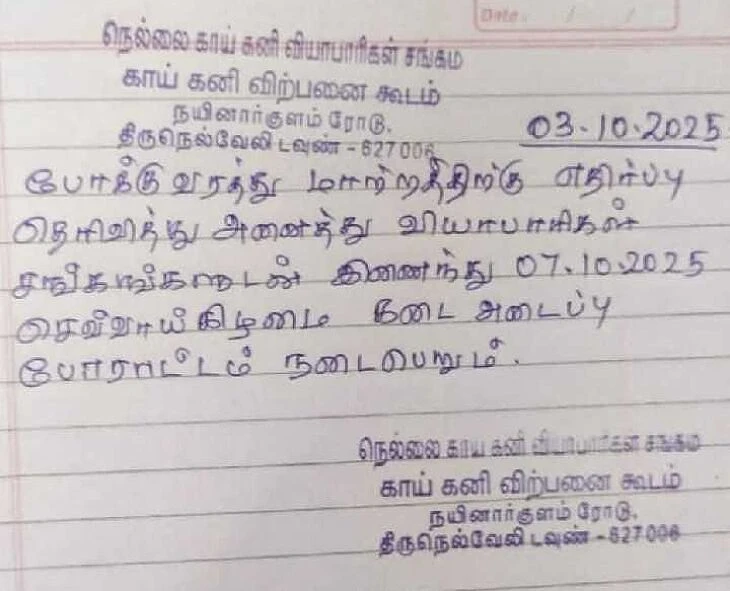 Date: / /
நெல்லை காய் கனி வியாபாரிகள் சங்கம
காய் கனி விற்பனை கூடம்
நயினார்குளம் ரோடு,
திருநெல்வேலி டவுண் - 627 006
03.10.2025
போக்கு வரத்து மாற்றத்திற்கு எதிர்ப்பு
தெரிவித்து அனைத்து வியாபாரிகள்
சங்கங்களுடன் இணைந்து 07.10.2025
செவ்வாய்கிழமை கடை அடைப்பு
போராட்டம் நடைபெறும்.
நெல்லை காய கனி வியாபாரிகள் சங்கம
காய் கனி விற்பனை கூடம்
நயினார்குளம் ரோடு,
திருநெல்வேலி டவுண் - 627 006